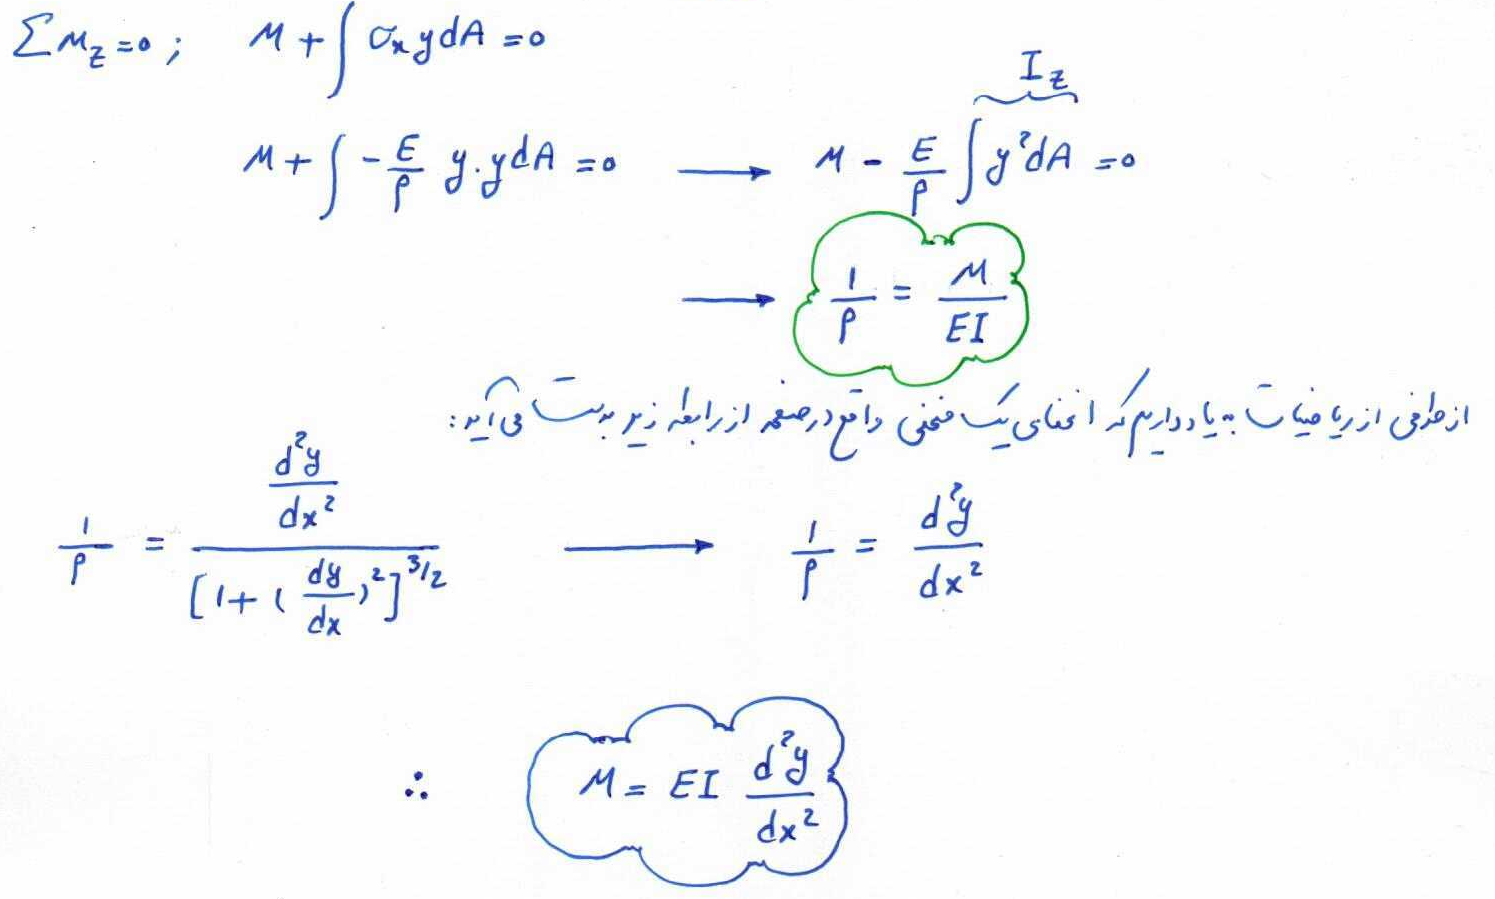 ΣM_z = 0 ; M + ∫ σ_x y dA = 0
M + ∫ - E/ρ y . y dA = 0 ⟶ M - E/ρ ∫ y² dA = 0 I_z
⟶ 1/ρ = M/EI
از طرفی از ریاضیات به یاد داریم که انحنای یک منحنی واقع در صفحه از رابطه زیر بدست می آید:
1/ρ = (d²y/dx²) / [1 + (dy/dx)²]^3/2 ⟶ 1/ρ = d²y/dx²
∴ M = EI d²y/dx²